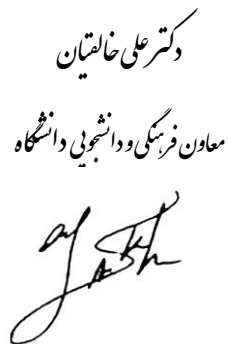 دکتر علی خالقیان
معاون فرهنگی و دانشجویی دانشگاه